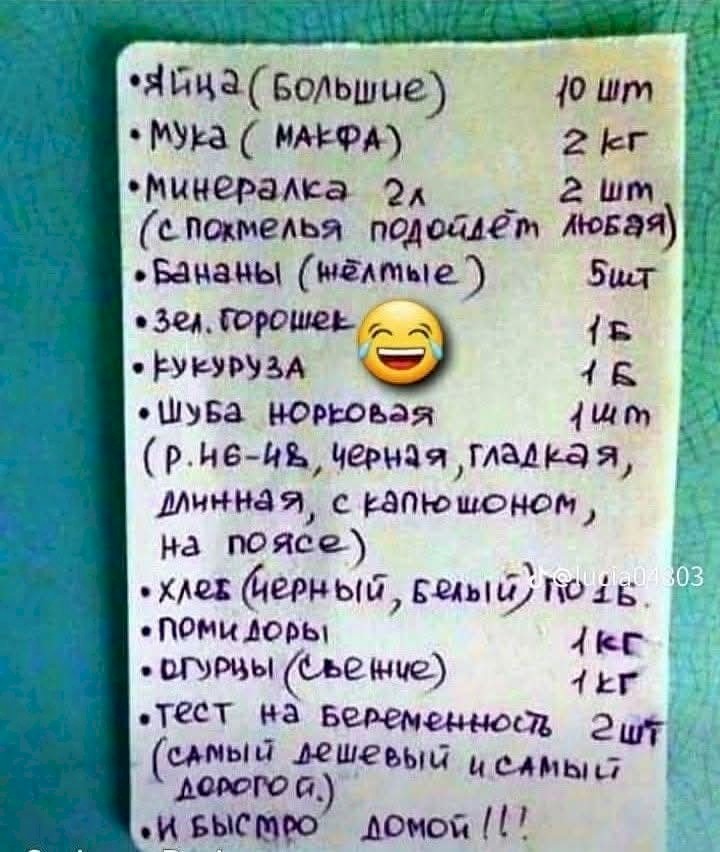 •Яйца (Большие) 10 шт
•мука ( МАКФА) 2 кг
•минералка 2л 2 шт
(с похмелья подойдёт любая)
•Бананы (жёлтые) 5шт
•зел. горошек 1 Б
•кукуруза 1 Б
•Шуба норковая 1 шт
(р.46-48, черная, гладкая,
длинная, с капюшоном,
на поясе)
•хлеб (черный, белый) по 1Б.
@lucia04803
•помидоры 1 кг
•огурцы (свежие) 1 кг
•тест на беременность 2шт
(самый дешевый и самый
дорогой.)
•и быстро домой!!!